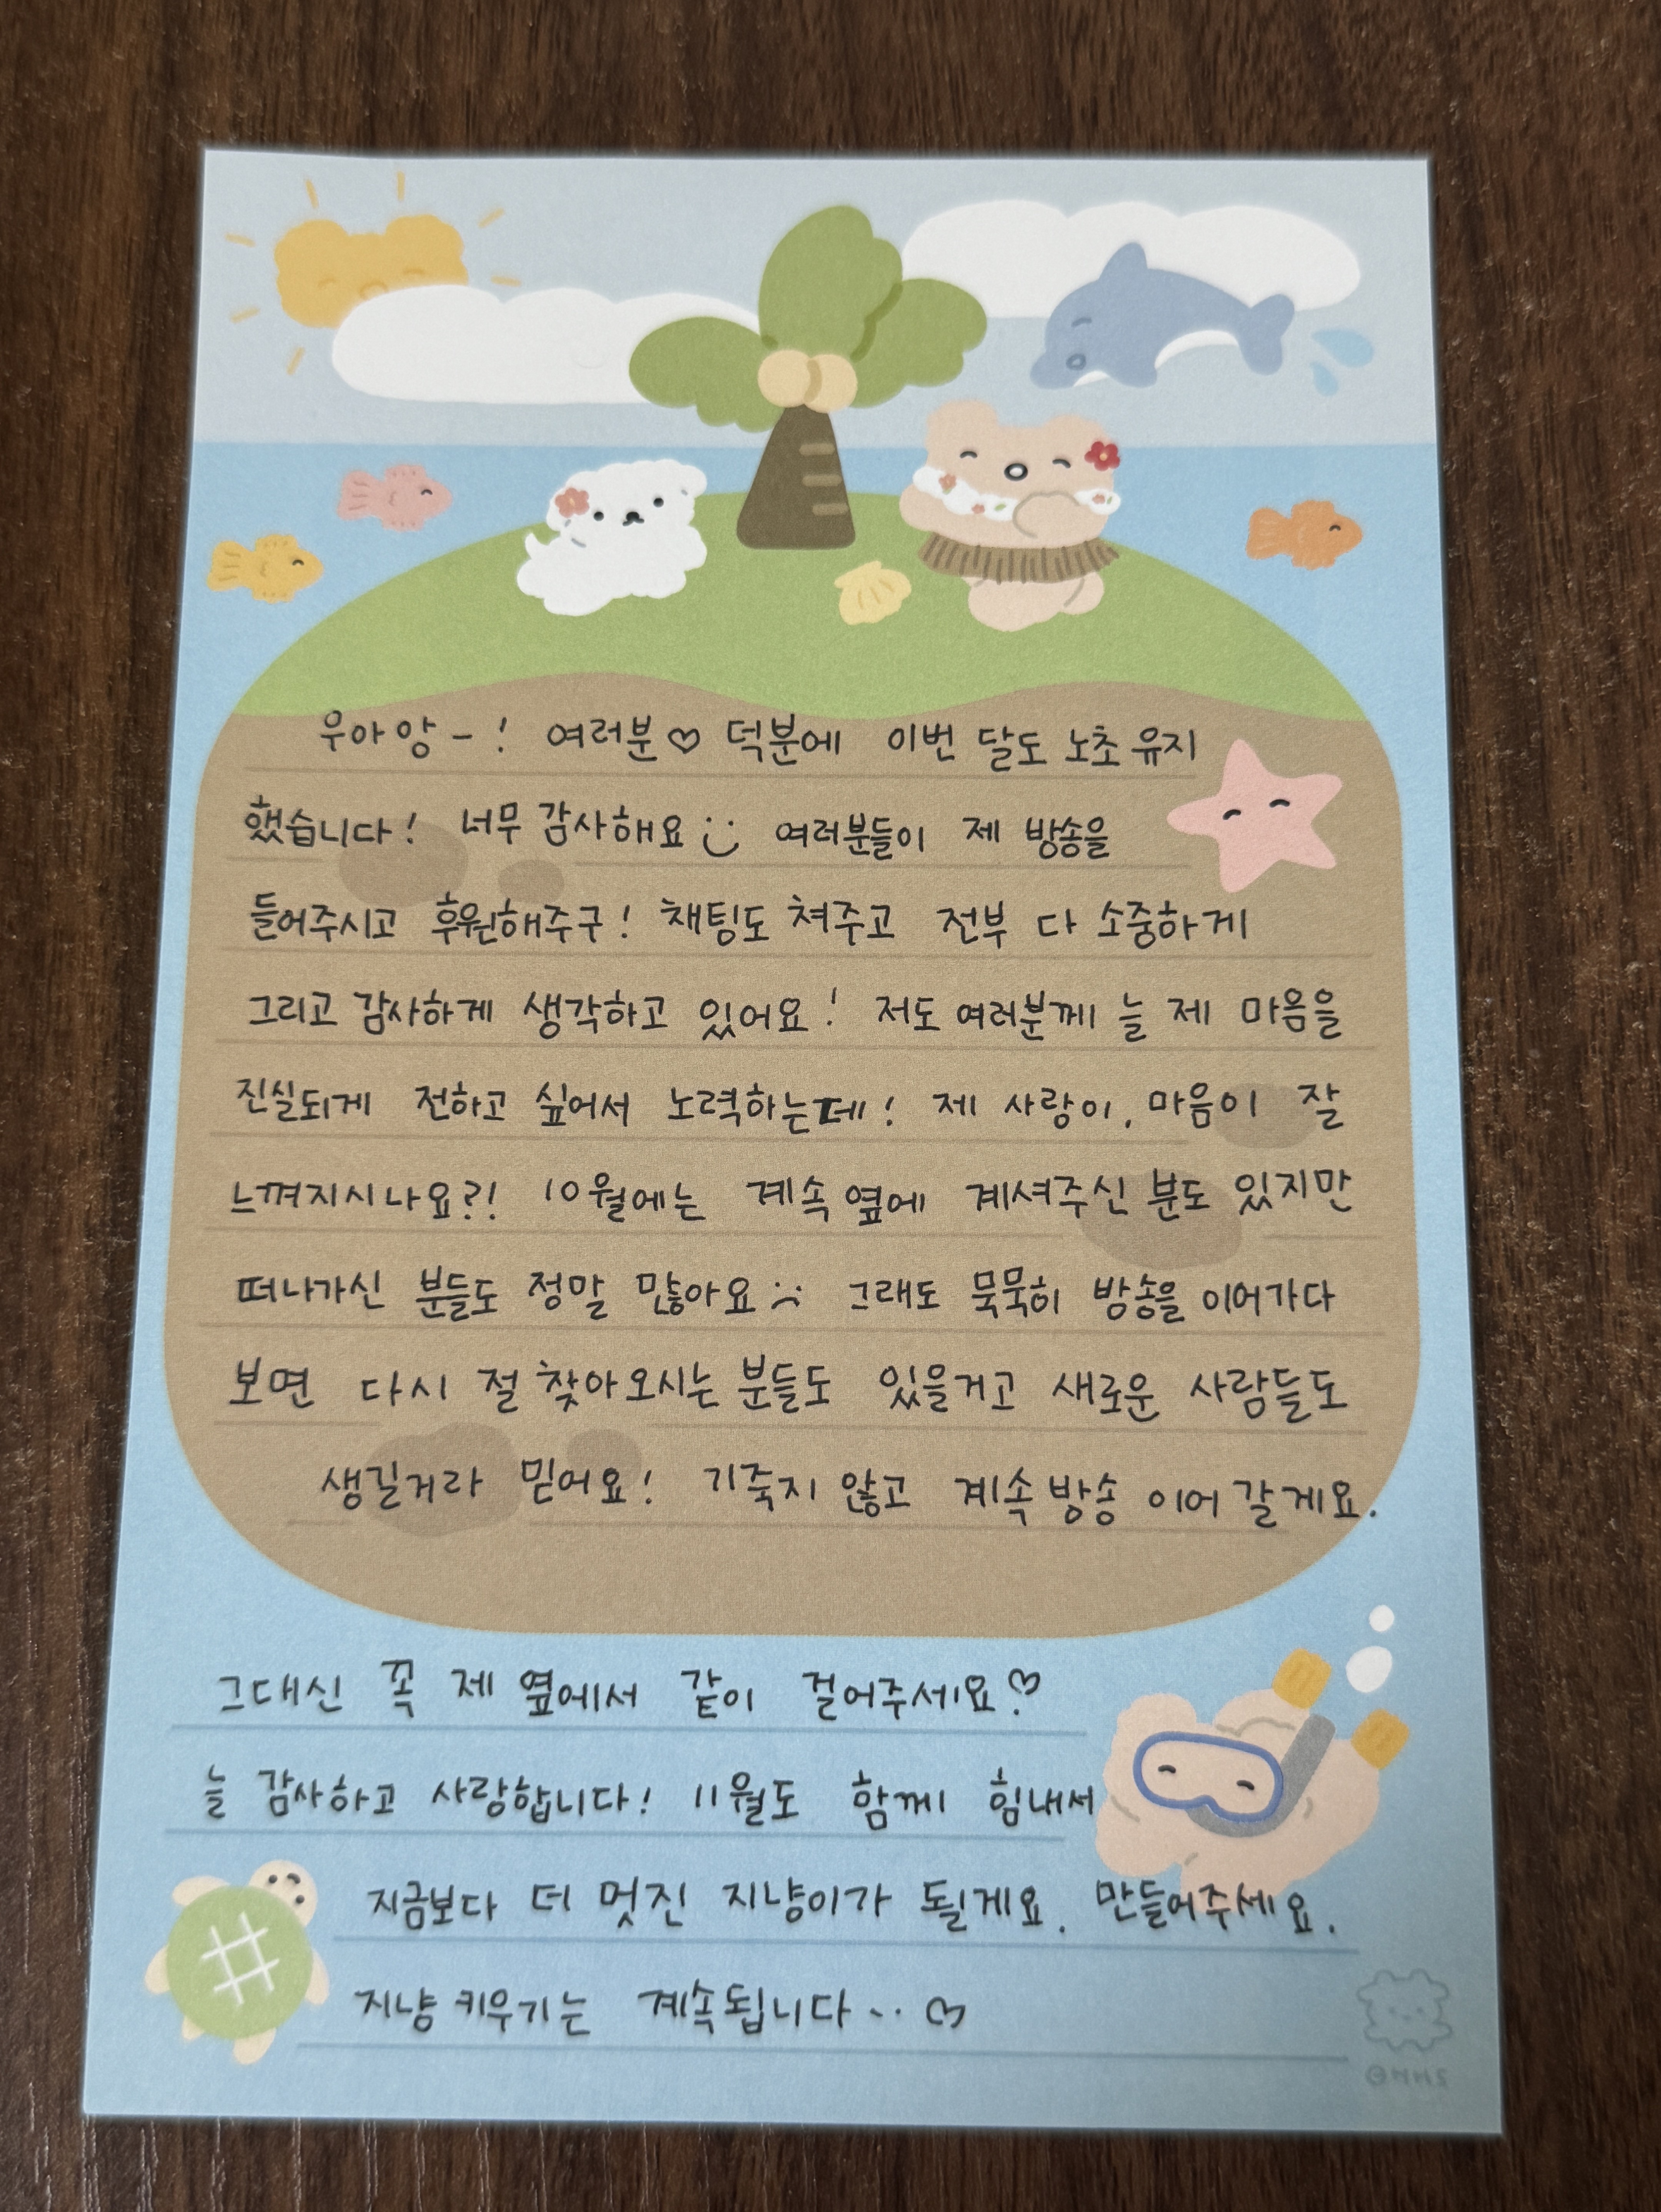 우아앙-! 여러분♡ 덕분에 이번 달도 노초 유지
했습니다! 너무 감사해요 :) 여러분들이 제 방송을
들어주시고 후원해주구! 채팅도 쳐주고 전부 다 소중하게
그리고 감사하게 생각하고 있어요! 저도 여러분께 늘 제 마음을
진실되게 전하고 싶어서 노력하는데! 제 사랑이, 마음이 잘
느껴지시나요?! 10월에는 계속 옆에 계셔주신 분도 있지만
떠나가신 분들도 정말 많아요 :( 그래도 묵묵히 방송을 이어가다
보면 다시 절 찾아오시는 분들도 있을거고 새로운 사람들도
생길거라 믿어요! 기죽지 않고 계속 방송 이어 갈게요.
그대신 꼭 제 옆에서 같이 걸어주세요♡
늘 감사하고 사랑합니다! 11월도 함께 힘내서
지금보다 더 멋진 지냥이가 될게요. 만들어주세요.
지냥 키우기는 계속됩니다... ♡